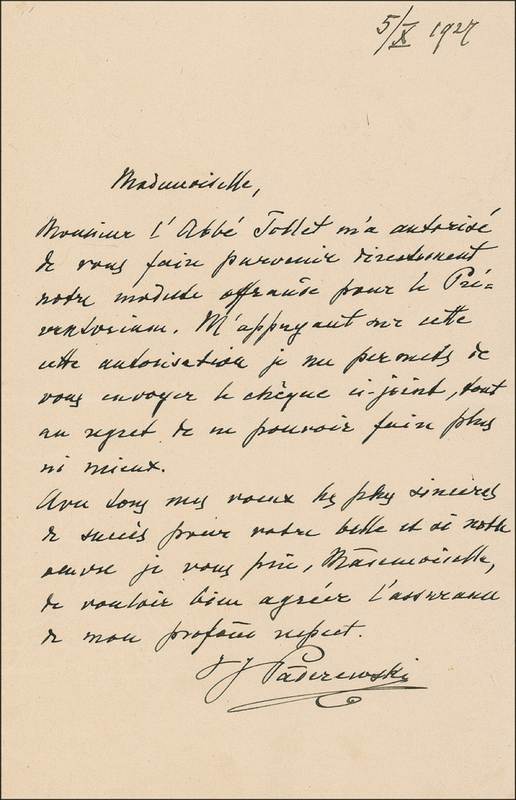 5/X 1927
Mademoiselle,
Monsieur l'Abbé Jollet m'a autorisé
de vous faire parvenir directement
notre modeste offrande pour le Pré-
ventorium. M'appuyant sur cette
cette autorisation je me permets de
vous envoyer le chèque ci-joint, tout
au regret de ne pouvoir faire plus
ni mieux.
Avec tous mes voeux les plus sincères
de succès pour votre belle et si noble
oeuvre je vous prie, Mademoiselle,
de vouloir bien agréer l'assurance
de mon profond respect.
I J Paderewski